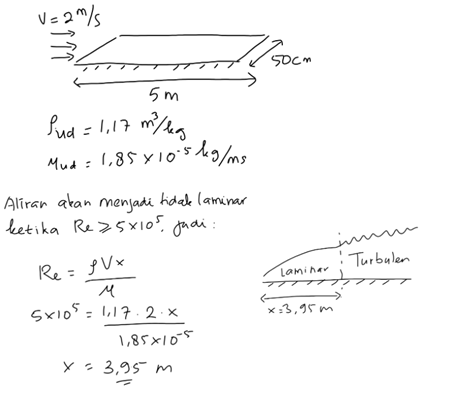 V = 2 m/s
50cm
5 m
ρud = 1,17 m³/kg
μud = 1,85 × 10⁻⁵ kg/ms
Aliran akan menjadi tidak laminar
ketika Re ≥ 5×10⁵, jadi :
Re = ρVx / μ
5×10⁵ = 1,17 · 2 · x / 1,85×10⁻⁵
x = 3,95 m
laminar
Turbulen
x=3,95 m